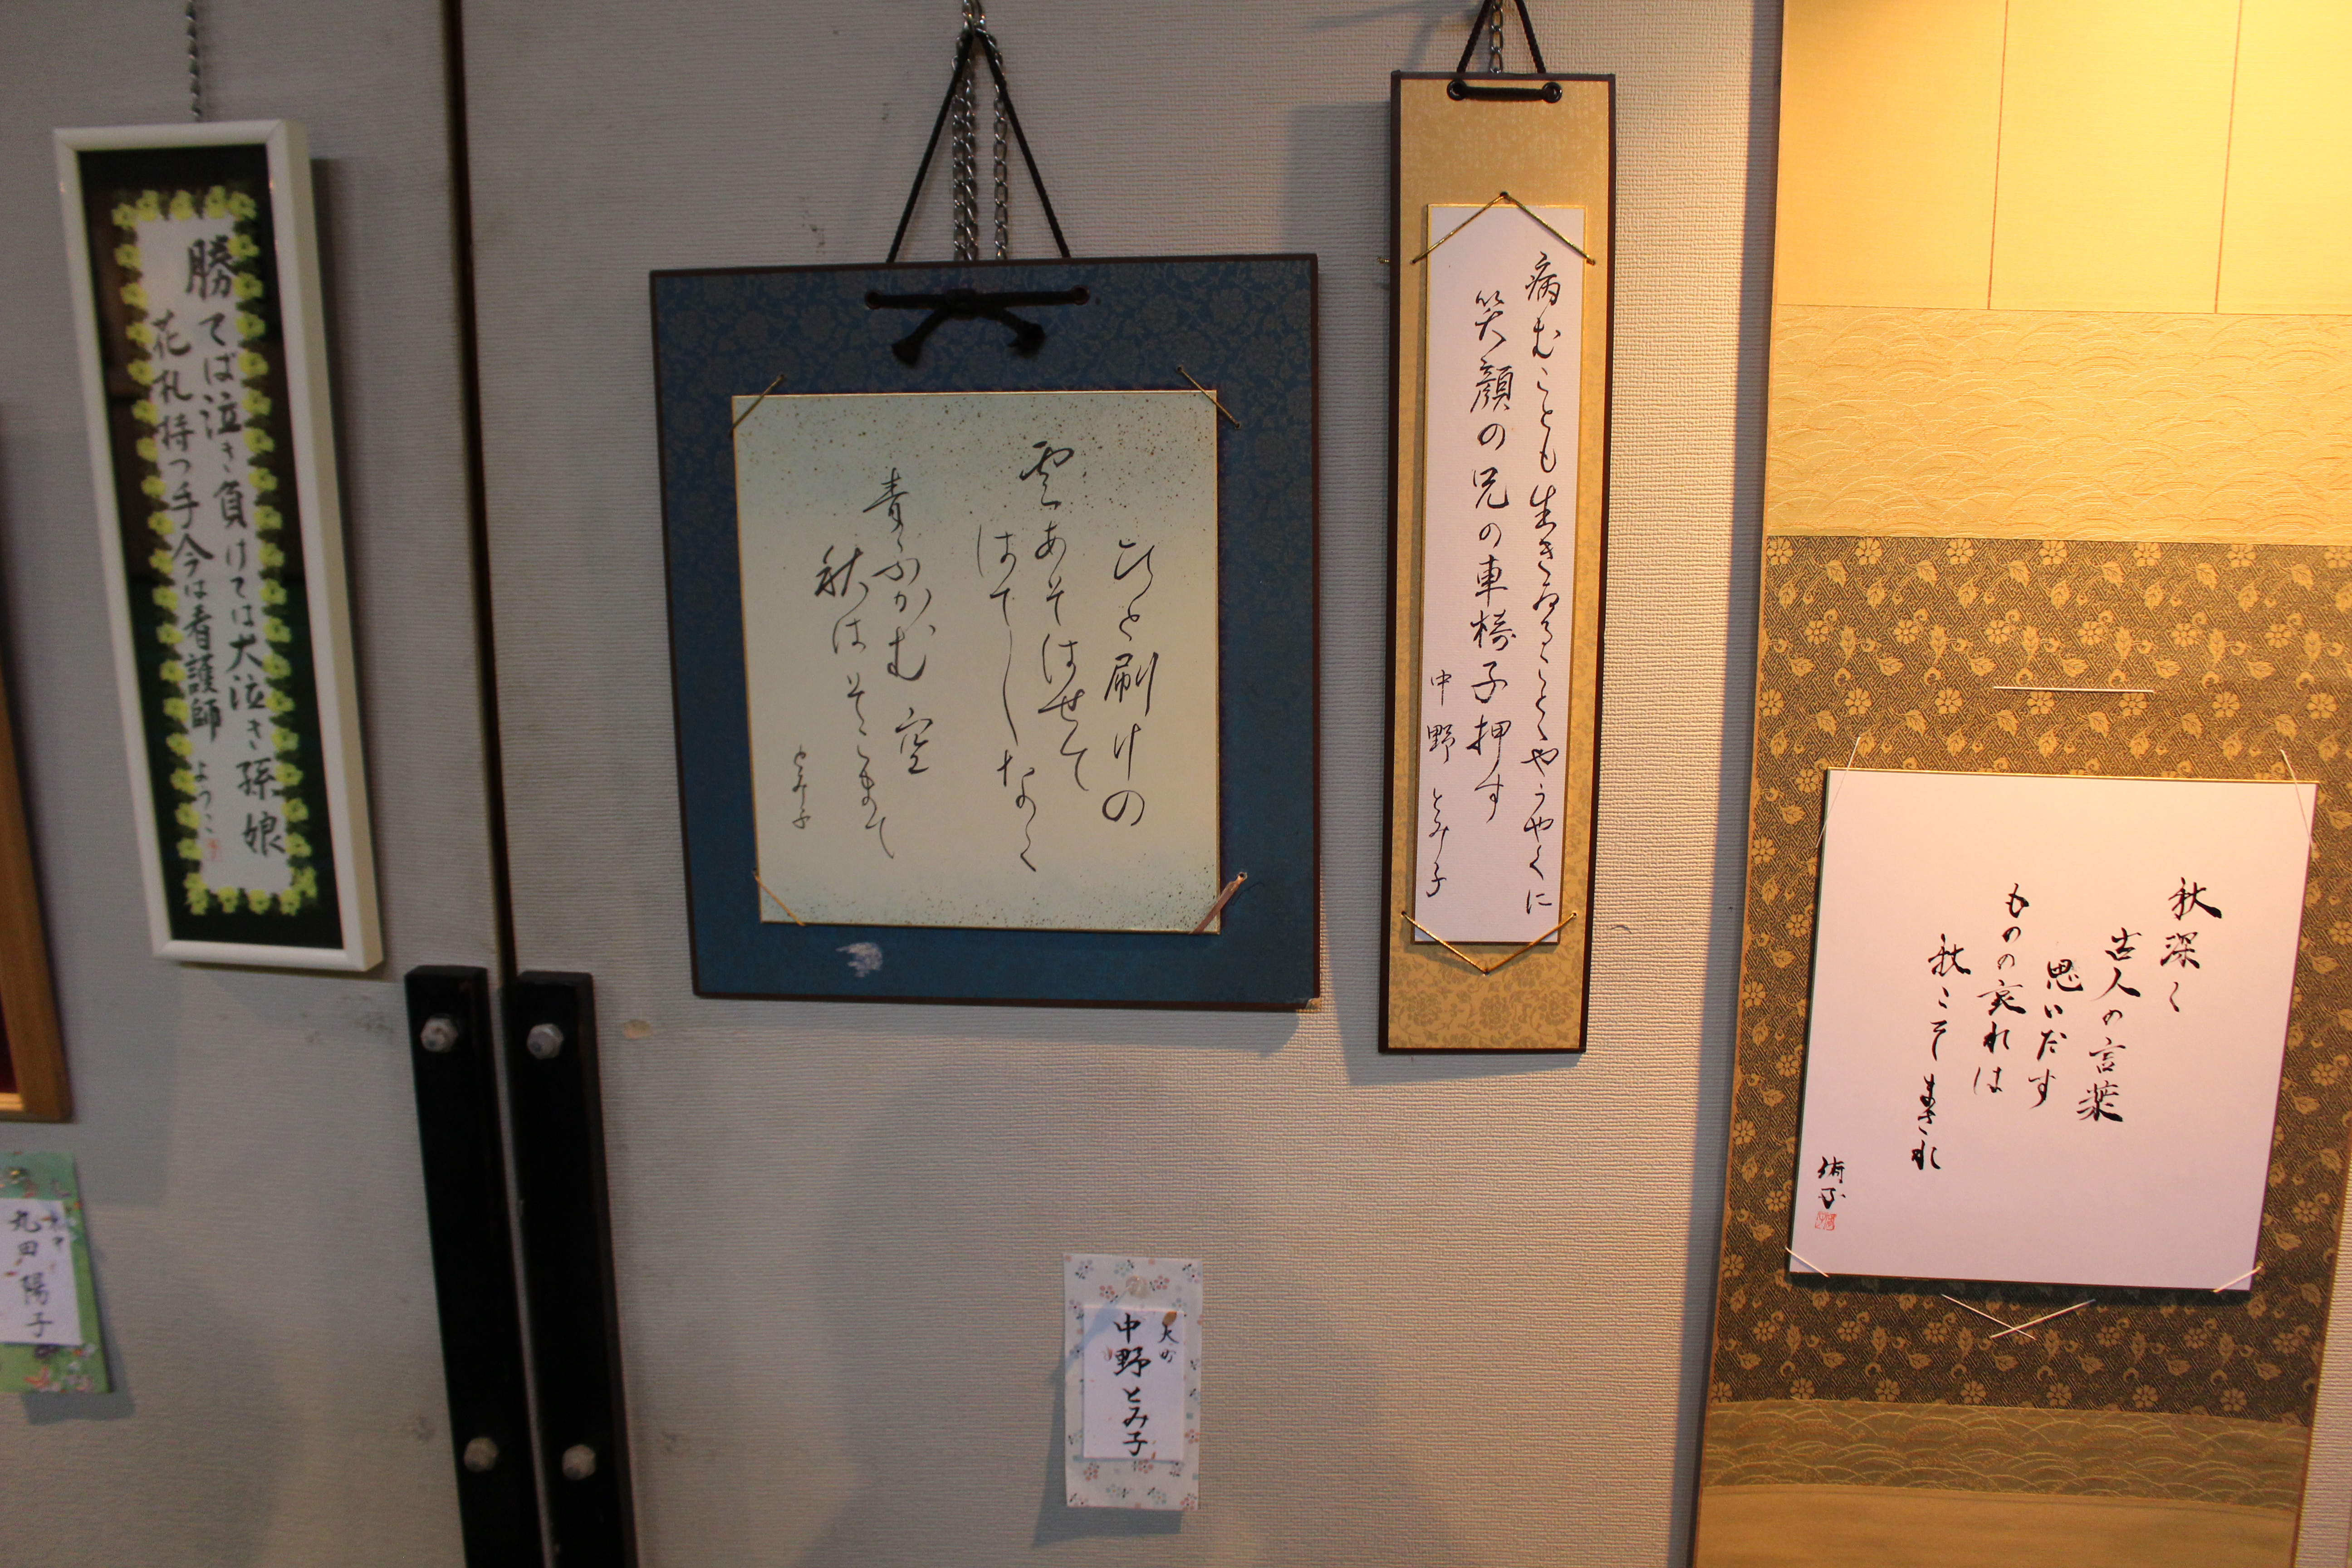 勝てば泣き負けては大泣き孫娘
花札持つ手今は看護師
ようこ
ひと刷けの
雲あそばせて
はてしなく
青ふかむ空
秋はそこまで
とみ子
病むことも生きゐることとやうやくに
笑顔の兄の車椅子押す
中野 とみ子
秋深く
古人の言葉
思いだす
ものの哀れは
秋こそまされ
丸田陽子
中野とみ子